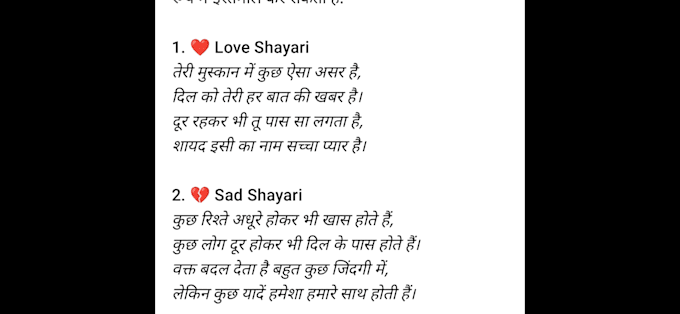 1. ❤️ Love Shayari
तेरी मुस्कान में कुछ ऐसा असर है,
दिल को तेरी हर बात की खबर है।
दूर रहकर भी तू पास सा लगता है,
शायद इसी का नाम सच्चा प्यार है।
2. 💔 Sad Shayari
कुछ रिश्ते अधूरे होकर भी खास होते हैं,
कुछ लोग दूर होकर भी दिल के पास होते हैं।
वक्त बदल देता है बहुत कुछ जिंदगी में,
लेकिन कुछ यादें हमेशा हमारे साथ होती हैं।